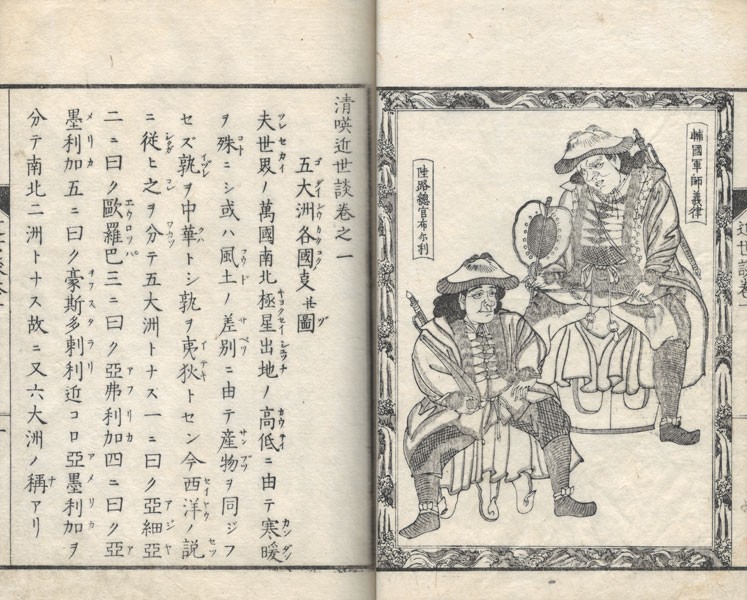 輔國軍師義律
陸路總官布尔利
清暎近世談卷之一
五大洲各國叓并圖
夫世界ノ萬國南北極星出地ノ高低ニ由テ寒暖
ヲ殊ニシ或ハ風土ノ差別ニ由テ産物ヲ同ジフ
セズ孰ヲ中華トシ孰ヲ夷狄トセン今西洋ノ説
ニ從ヒ之ヲ分テ五大洲トナス一ニ曰ク亞細亞
二ニ曰ク歐羅巴三ニ曰ク亞弗利加四ニ曰ク亞
墨利加五ニ曰ク豪斯多剌利近コロ亞墨利加ヲ
分テ南北二洲トナス故ニ又六大洲ノ稱アリ